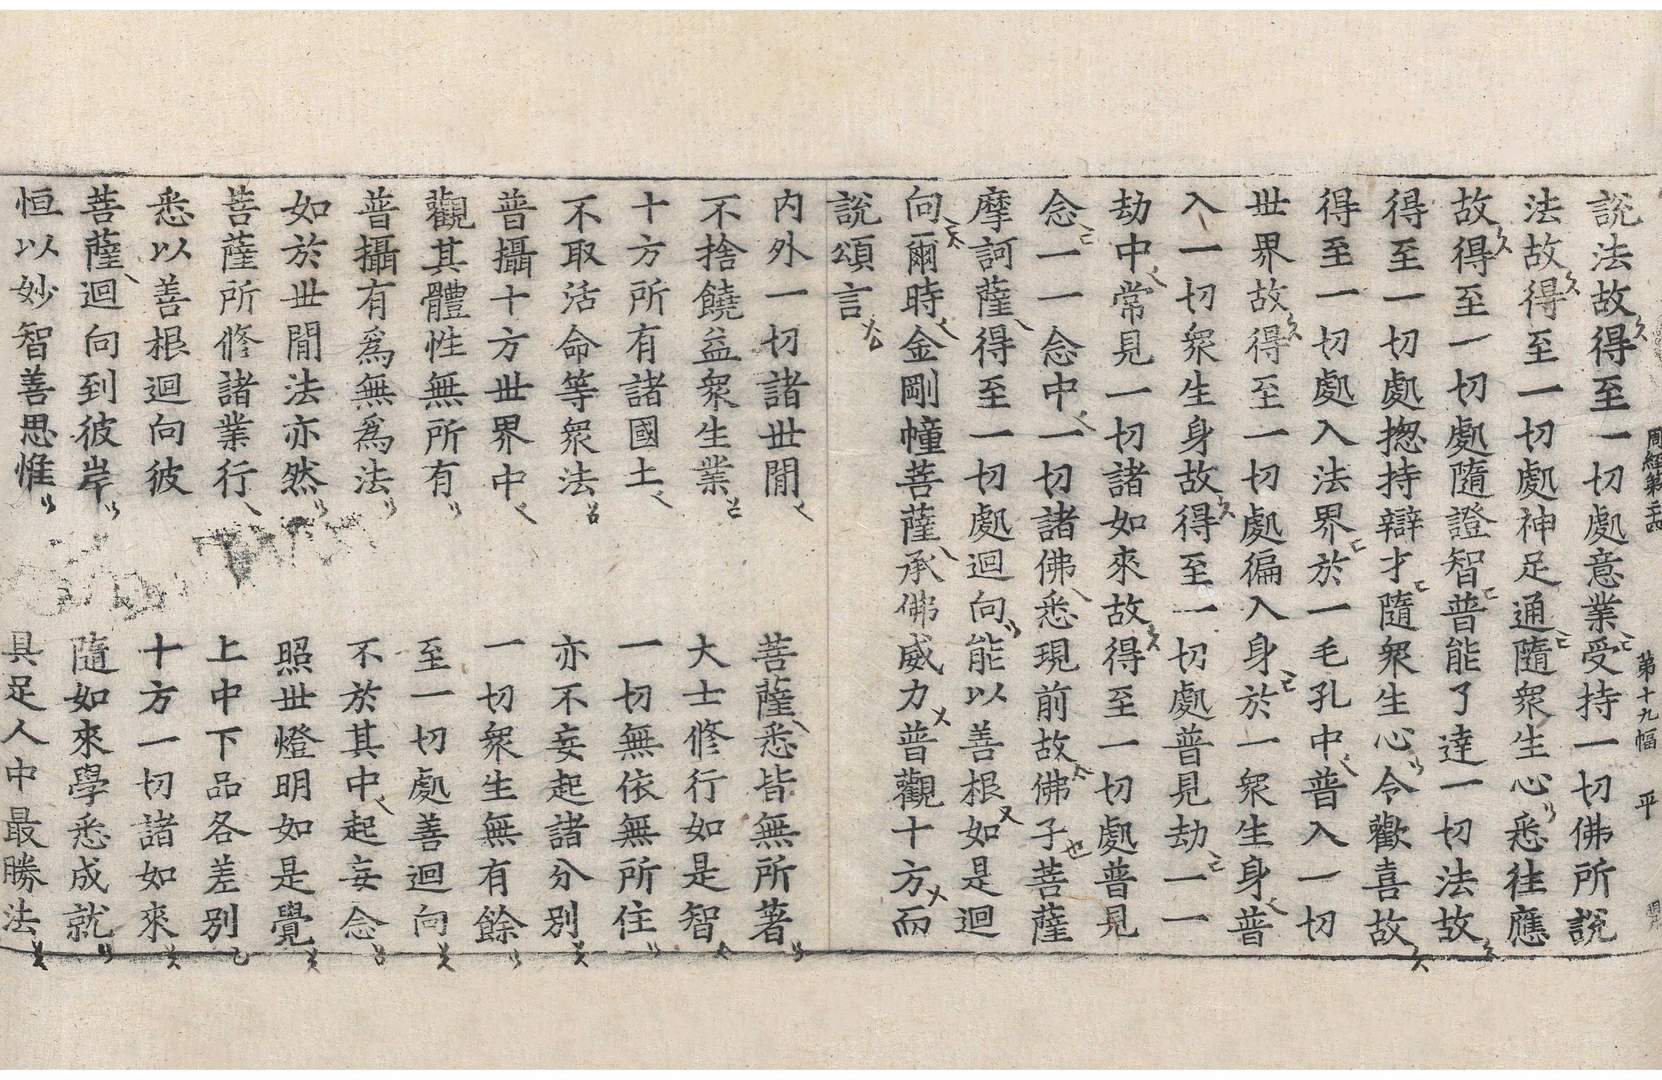 周經第二十四 第十九幅 平
說法故得至一切處意業受持一切佛所說
法故得至一切處神足通隨衆生心悉往應
故得至一切處隨證智普能了達一切法故
得至一切處揔持辯才隨衆生心令歡喜故
得至一切處入法界於一毛孔中普入一切
世界故得至一切處徧入身於一衆生身普
入一切衆生身故得至一切處普見劫一一
劫中常見一切諸如來故得至一切處普見
念一一念中一切諸佛悉現前故佛子菩薩
摩訶薩得至一切處迴向能以善根如是迴
向爾時金剛幢菩薩承佛威力普觀十方而
說頌言
內外一切諸世閒 菩薩悉皆無所著
不捨饒益衆生業 大士修行如是智
十方所有諸國土 一切無依無所住
不取活命等衆法 亦不妄起諸分別
普攝十方世界中 一切衆生無有餘
觀其體性無所有 至一切處善迴向
普攝有爲無爲法 不於其中起妄念
如於世閒法亦然 照世燈明如是覺
菩薩所修諸業行 上中下品各差別
悉以善根迴向彼 十方一切諸如來
菩薩迴向到彼岸 隨如來學悉成就
恒以妙智善思惟 具足人中最勝法